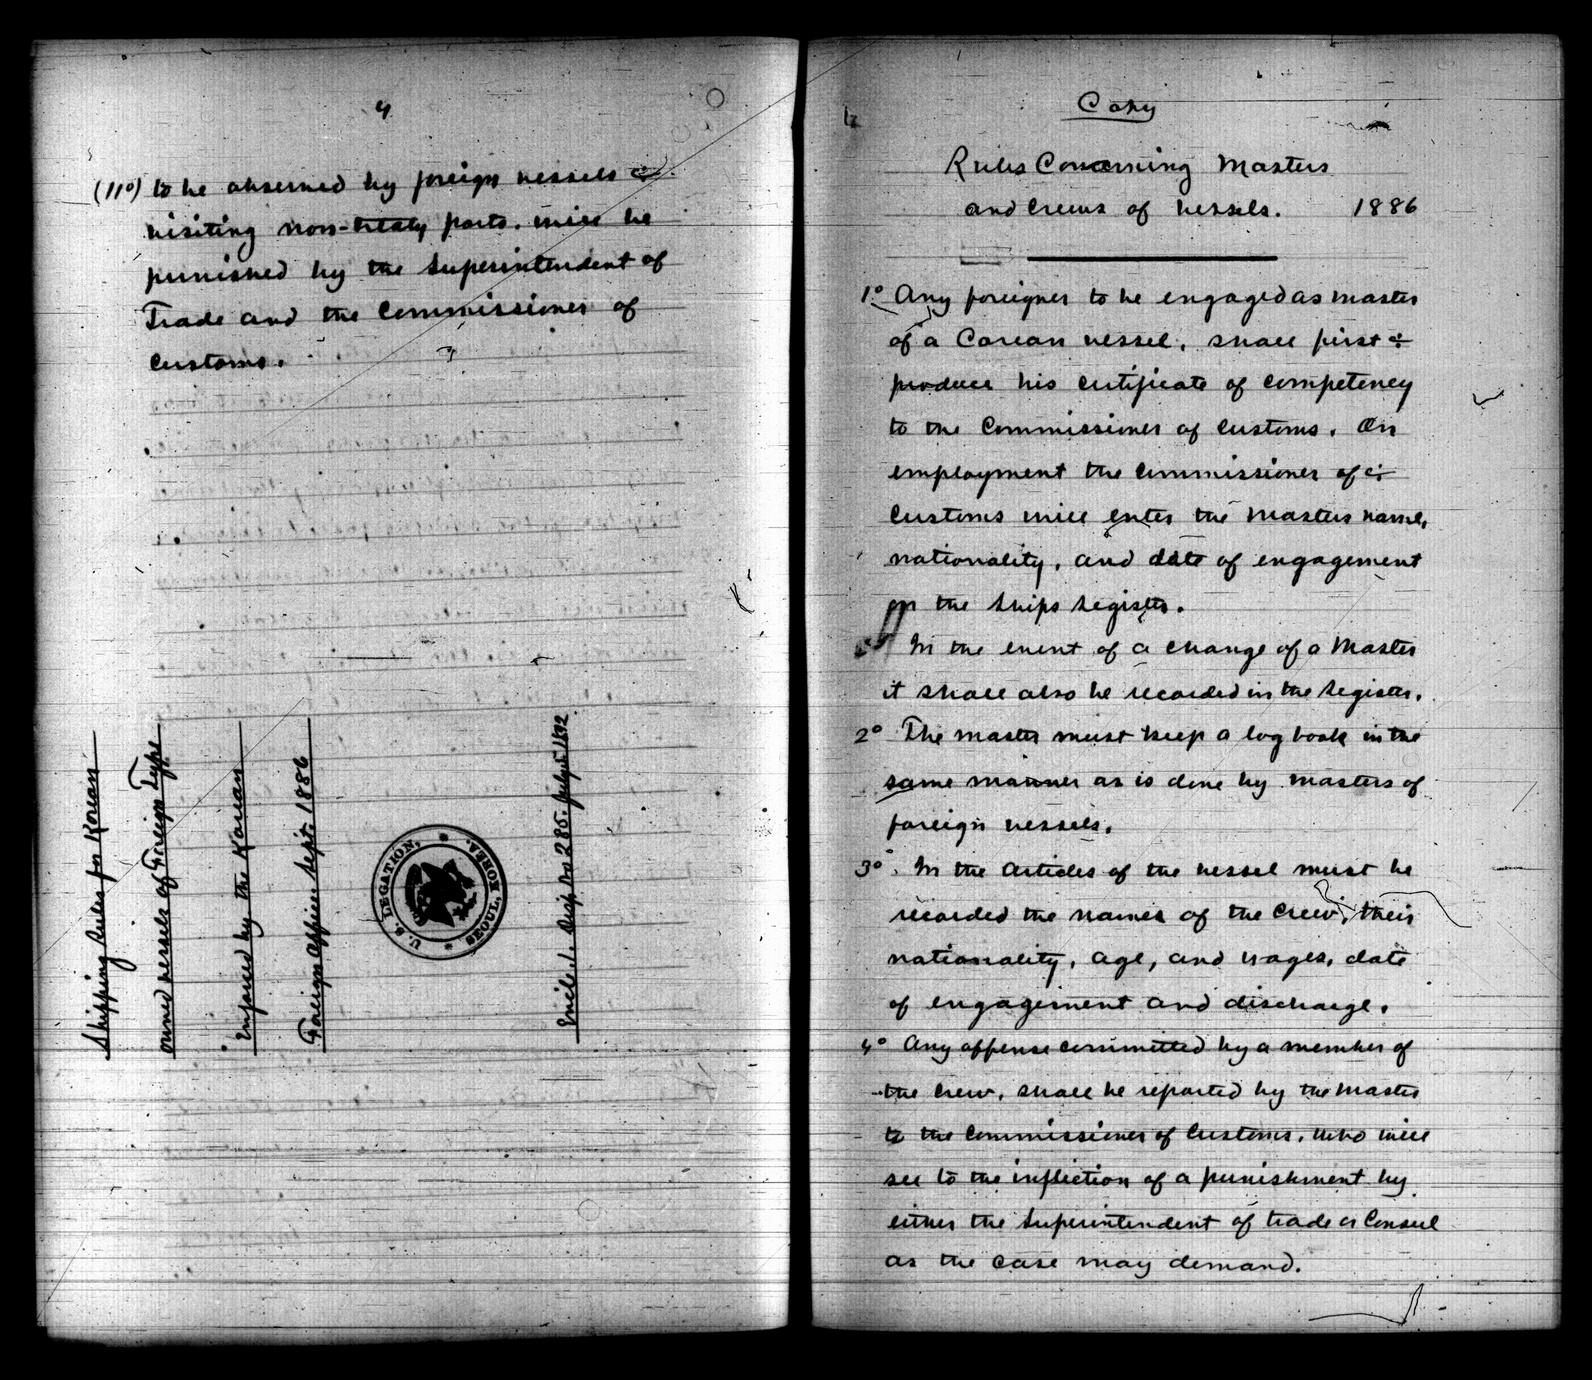 4
(11°) to be observed by foreign vessels
visiting non-treaty ports. will be
punished by the Superintendent of
Trade and the Commissioner of
Customs.
Shipping Rules for Korean
owned vessels of Foreign Type
Enforced by the Korean
Foreign Office. Sept. 1886
U. S. LEGATION,
SEOUL, KOREA.
Encl. 1. Disp No 285. July 5 1892
Copy
Rules Concerning Masters
and Crews of Vessels. 1886
1° Any foreigner to be engaged as master
of a Corean vessel, shall first
produce his certificate of competency
to the Commissioner of Customs. On
employment the Commissioner of
Customs will enter the Masters name,
nationality, and date of engagement
on the Ships Register.
In the event of a change of a Master
it shall also be recorded in the Register.
2° The master must keep a log book in the
same manner as is done by masters of
foreign vessels.
3° In the Articles of the vessel must be
recorded the names of the crew, their
nationality, age, and wages, date
of engagement and discharge.
4° Any offense committed by a member of
the crew, shall be reported by the Master
to the Commissioner of Customs, who will
see to the infliction of a punishment by
either the Superintendent of trade or Consul
as the case may demand.